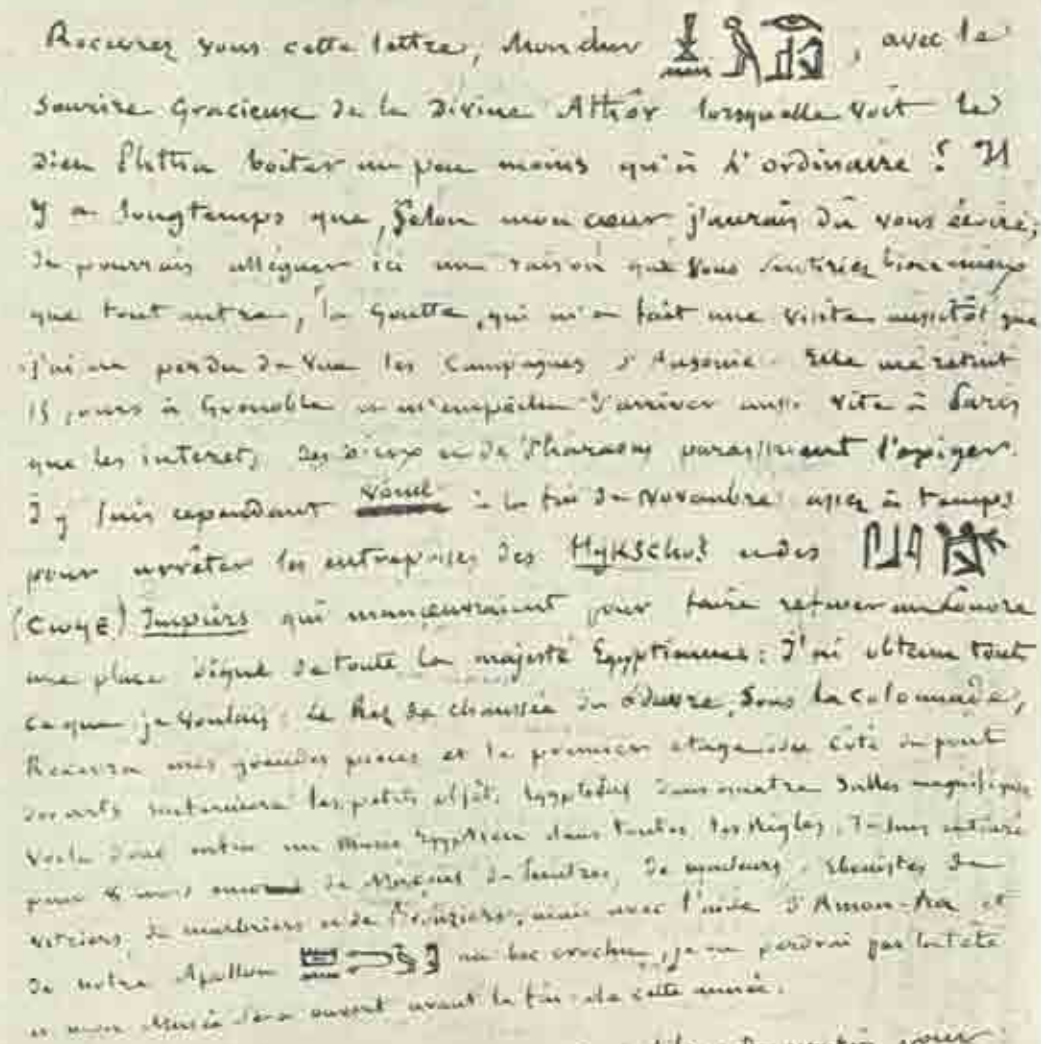 Recevrez vous cette lettre, Mon cher , avec le
Sourire Gracieuse de la Divine Athôr lorsquelle voit le
Dieu Phtha boiter un peu moins qu'à l'ordinaire ? Il
y a longtemps que, selon mon cœur j'aurais dû vous écrire;
Je pourrais alléguer ici une raison que vous sentiriez bien mieux
que tout autre, la Goutte, qui m'a fait une visite aussitôt que
j'ai eu perdu de vue les Campagnes d'Ausonie. Elle me retint
15 jours à Grenoble et m'empêcha d'arriver aussi vite à Paris
que les interets des dieux et de Pharaons paraissaient l'exiger.
J'y suis cependant venu à la fin de Novembre assez à temps
pour arrêter les entreprises des Hykschos et des
(CWYE) Impurs qui manœuvraient pour faire refuser au Louvre
une place digne de toute la majesté Egyptienne: J'ai obtenu tout
ce que je voulais; le Rez de chaussée du Louvre, sous la Colonnade,
Recevra mes grandes pieces et le premier etage du coté du pont
des arts renfermera les petits objets Egyptiens dans quatre Salles magnifiques
Voila donc enfin un Musée Egyptien dans toutes les Règles. Je suis entouré
pour 8 mois de Maçons de peintres, de , Ebenistes de
vitriers, de marbriers et de , mais avec l'aide d'Amon-Ra et
de notre Apollon au bec crochu, je ne perdrai pas la tête
et mon Musée sera ouvert avant la fin de cette année.
pour